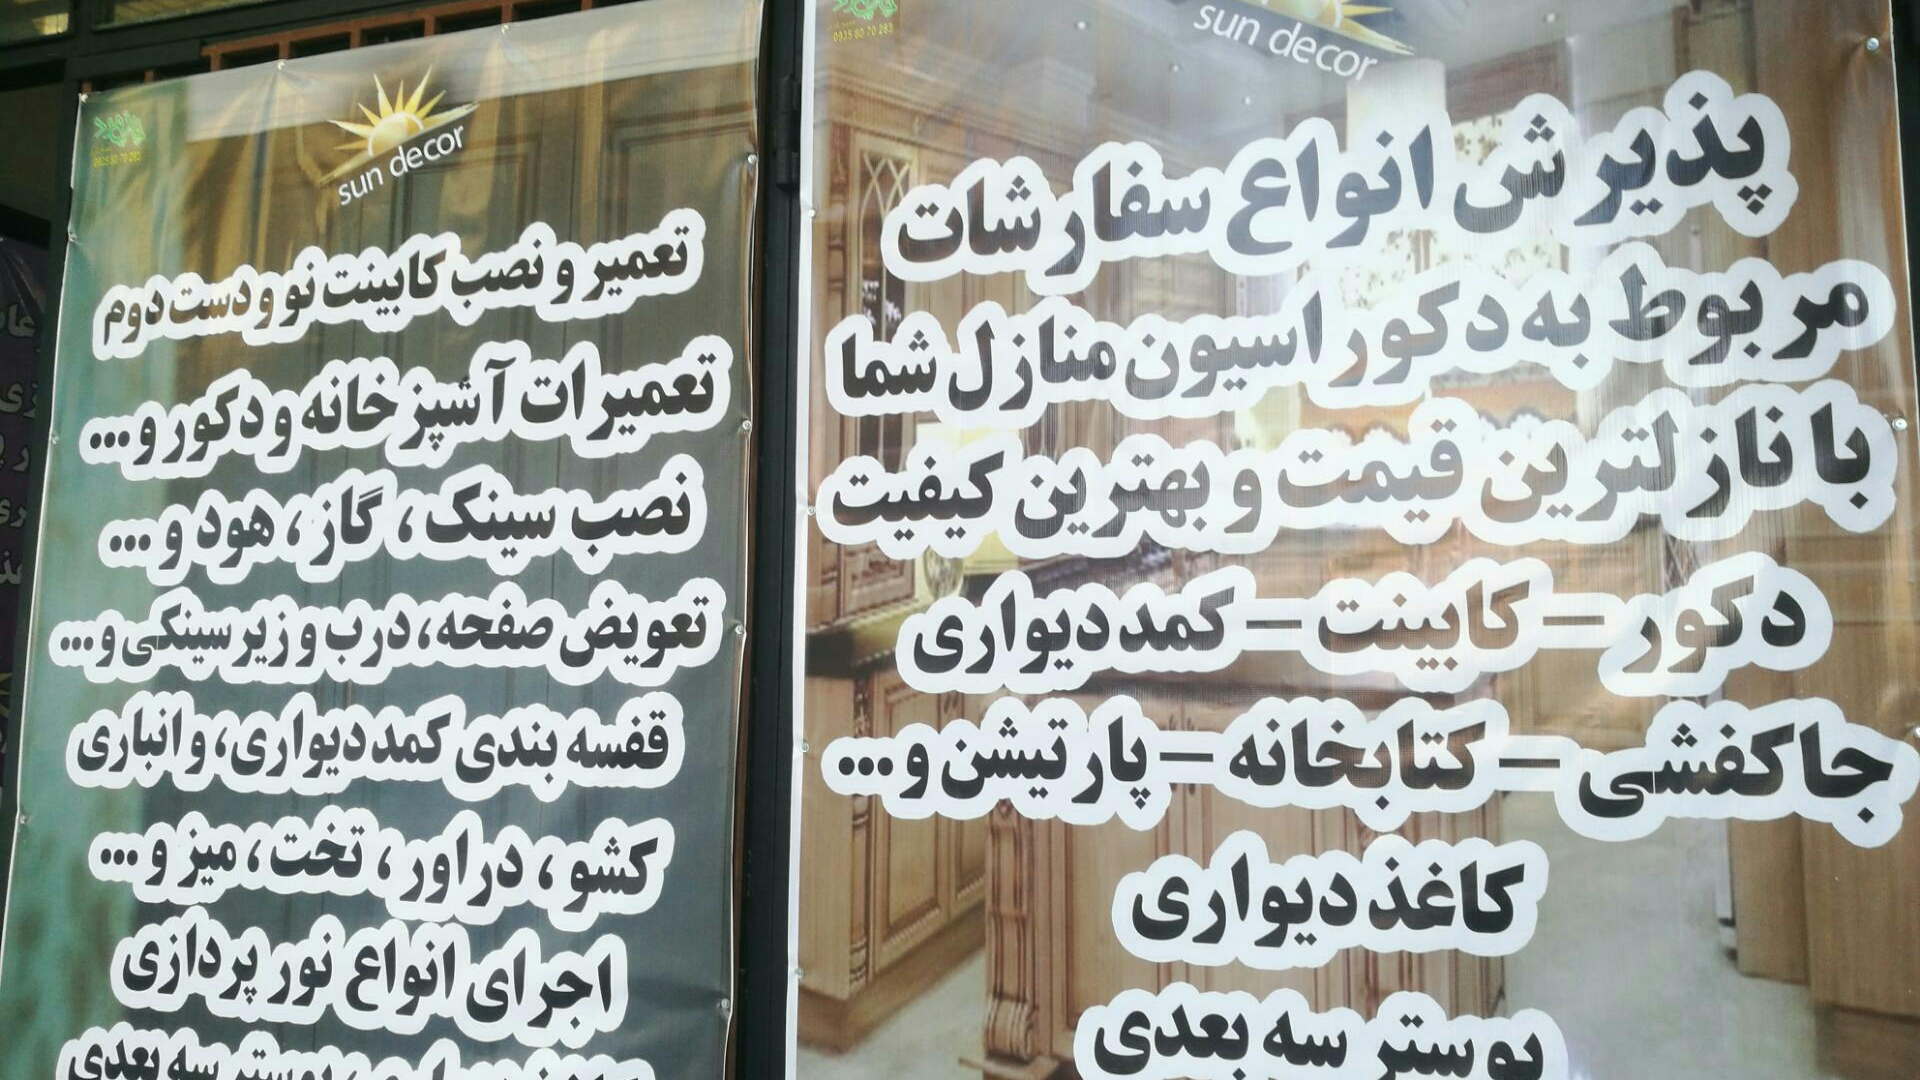 sun decor
پذیرش انواع سفارشات
مربوط به دکوراسیون منازل شما
با نازلترین قیمت و بهترین کیفیت
دکور – کابینت – کمد دیواری
جاکفشی – کتابخانه – پارتیشن و...
کاغذ دیواری
پوستر سه بعدی
0935 80 70 283
sun decor
0935 80 70 283
تعمیر و نصب کابینت نو و دست دوم
تعمیرات آشپزخانه و دکور و...
نصب سینک ، گاز ، هود و ...
تعویض صفحه، درب و زیر سینکی و...
قفسه بندی کمد دیواری، و انباری
کشو ، دراور ، تخت ، میز و ...
اجرای انواع نور پردازی
پوستر سه بعدی